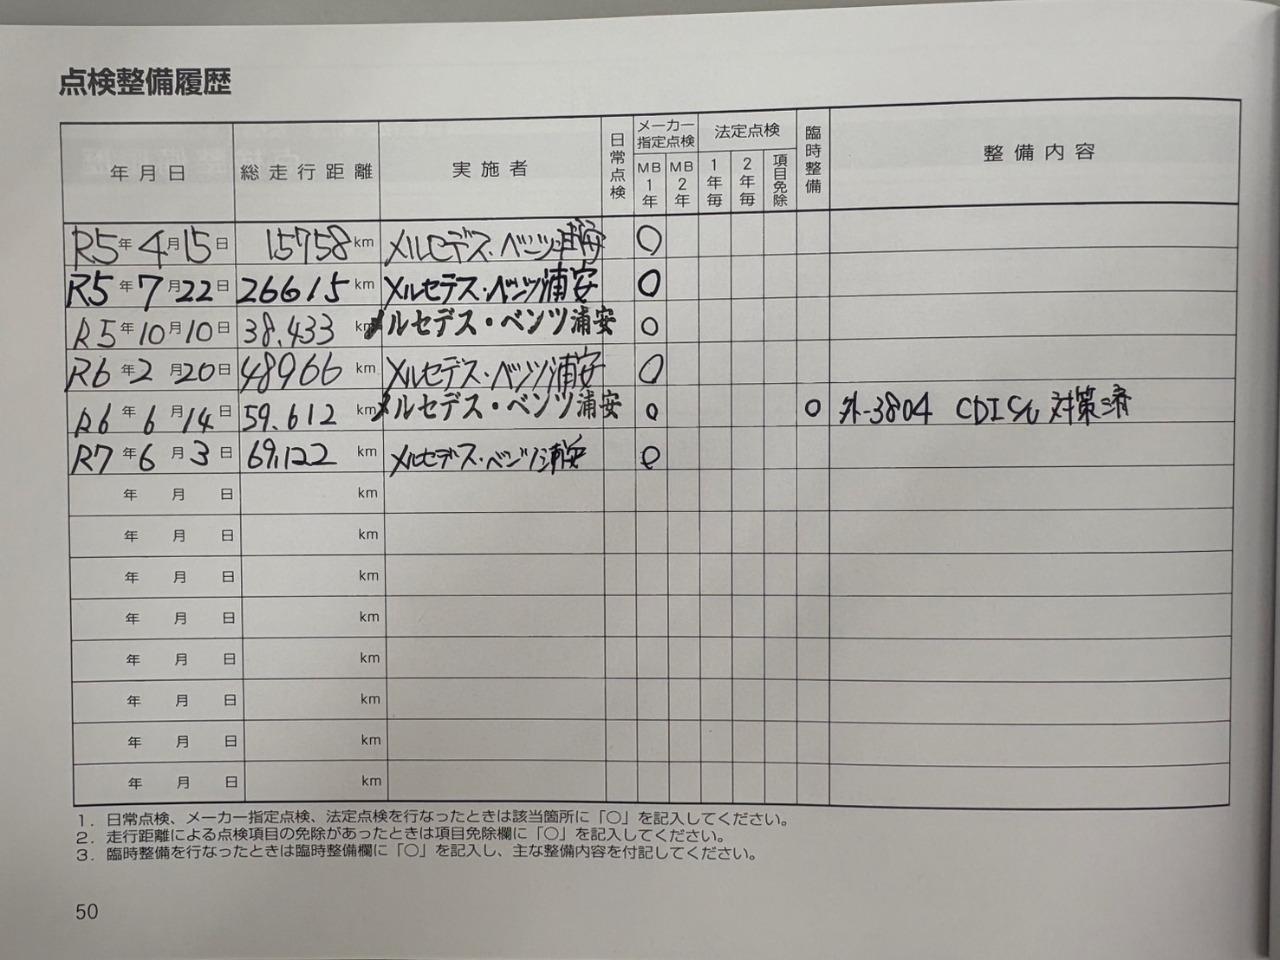 点検整備履歴
年月日 総走行距離 実施者 日常点検 メーカー指定点検 MB1年 MB2年 法定点検 1年毎 2年毎 項目免除 臨時整備 整備内容
R5年4月15日 15758km メルセデス・ベンツ浦安 ○
R5年7月22日 26615km メルセデス・ベンツ浦安 ○
R5年10月10日 38,433km メルセデス・ベンツ浦安 ○
R6年2月20日 48966km メルセデス・ベンツ浦安 ○
R6年6月14日 59.612km メルセデス・ベンツ浦安 ○ ○ 外-3804 CDI 対策済
R7年6月3日 69,122km メルセデス・ベンツ浦安 ○
年 月 日 km
年 月 日 km
年 月 日 km
年 月 日 km
年 月 日 km
年 月 日 km
年 月 日 km
年 月 日 km
1. 日常点検、メーカー指定点検、法定点検を行なったときは該当箇所に「○」を記入してください。
2. 走行距離による点検項目の免除があったときは項目免除欄に「○」を記入してください。
3. 臨時整備を行なったときは臨時整備欄に「○」を記入し、主な整備内容を付記してください。
50